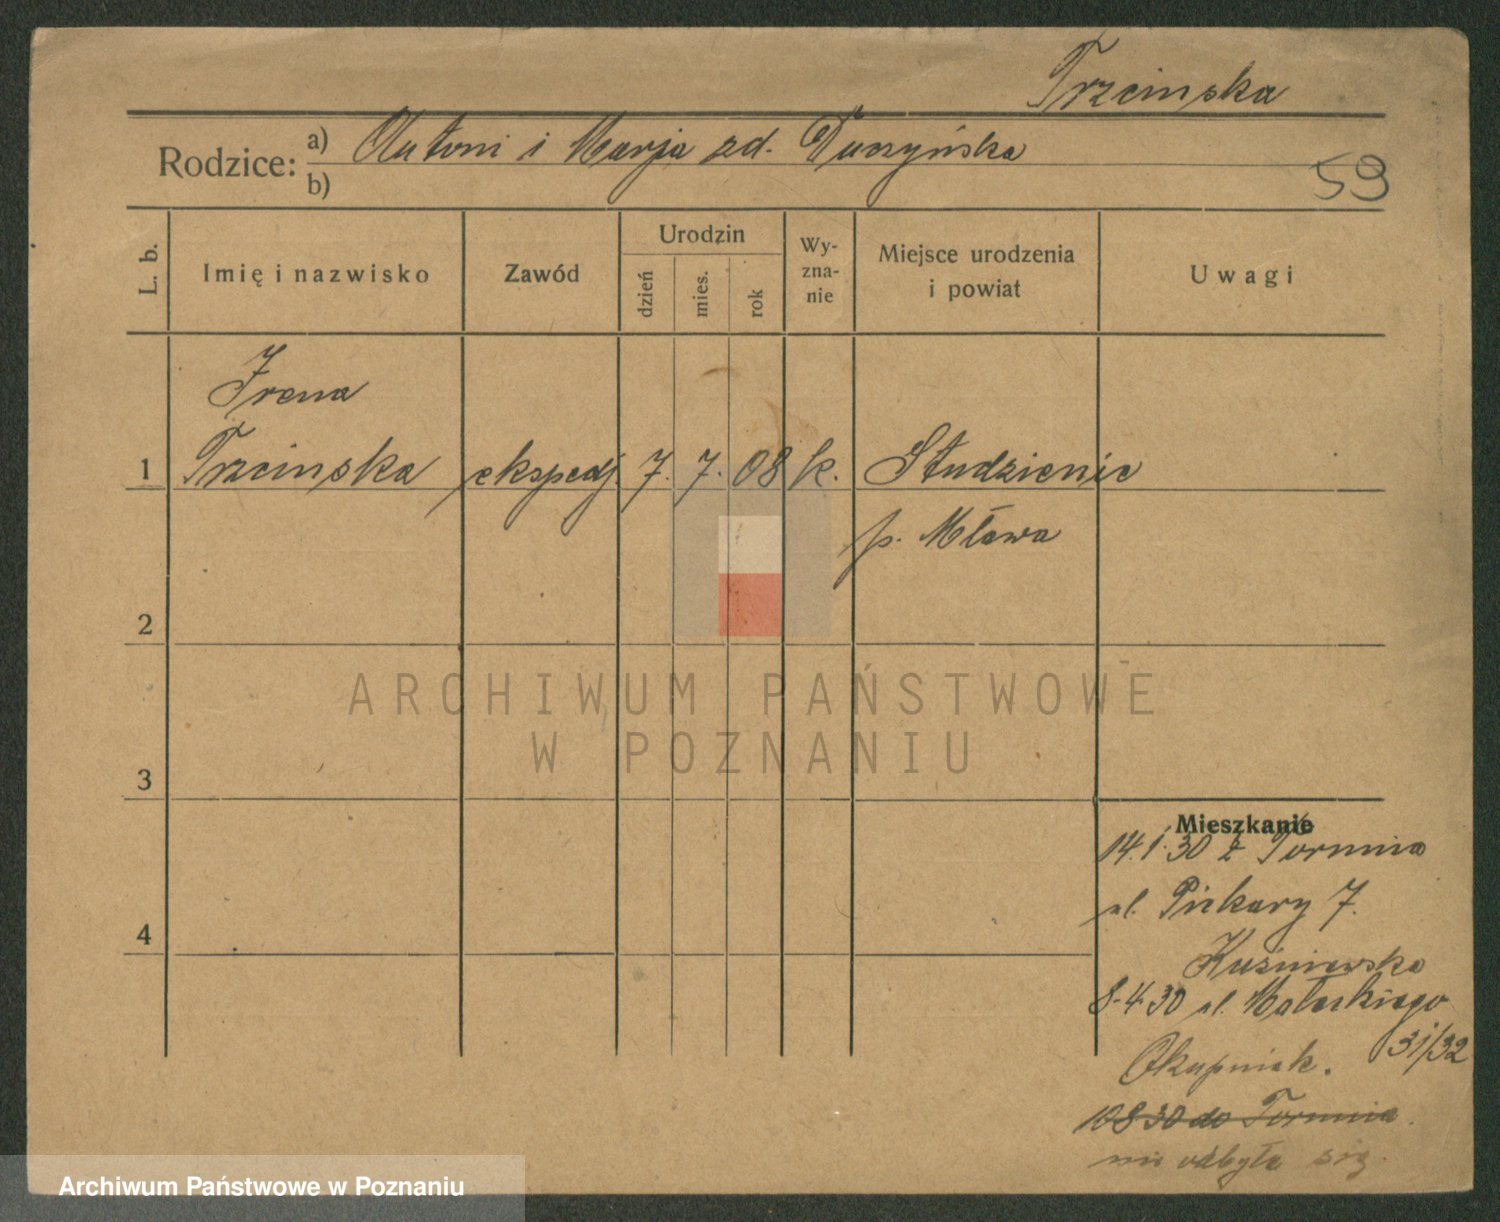 Trzcinska
Rodzice: a) Antoni i Marja zd. Duszyńska
b)
59
L. b. Imię i nazwisko Zawód Urodzin dzień mies. rok Wy-zna-nie Miejsce urodzenia i powiat Uwagi
Irena
1 Trzcinska ekspedj. 7. 7. 08 k. Studzieniec
p. Mława
2
ARCHIWUM PAŃSTWOWE
W POZNANIU
3
Mieszkanie
14.1.30 z Torunia
ul. Piekary 7.
4
Kuśnierska
8.4.30 ul. Małeckiego
31/32
Okupniak.
10.8.30 do Torunia.
nie odbyła się.
Archiwum Państwowe w Poznaniu